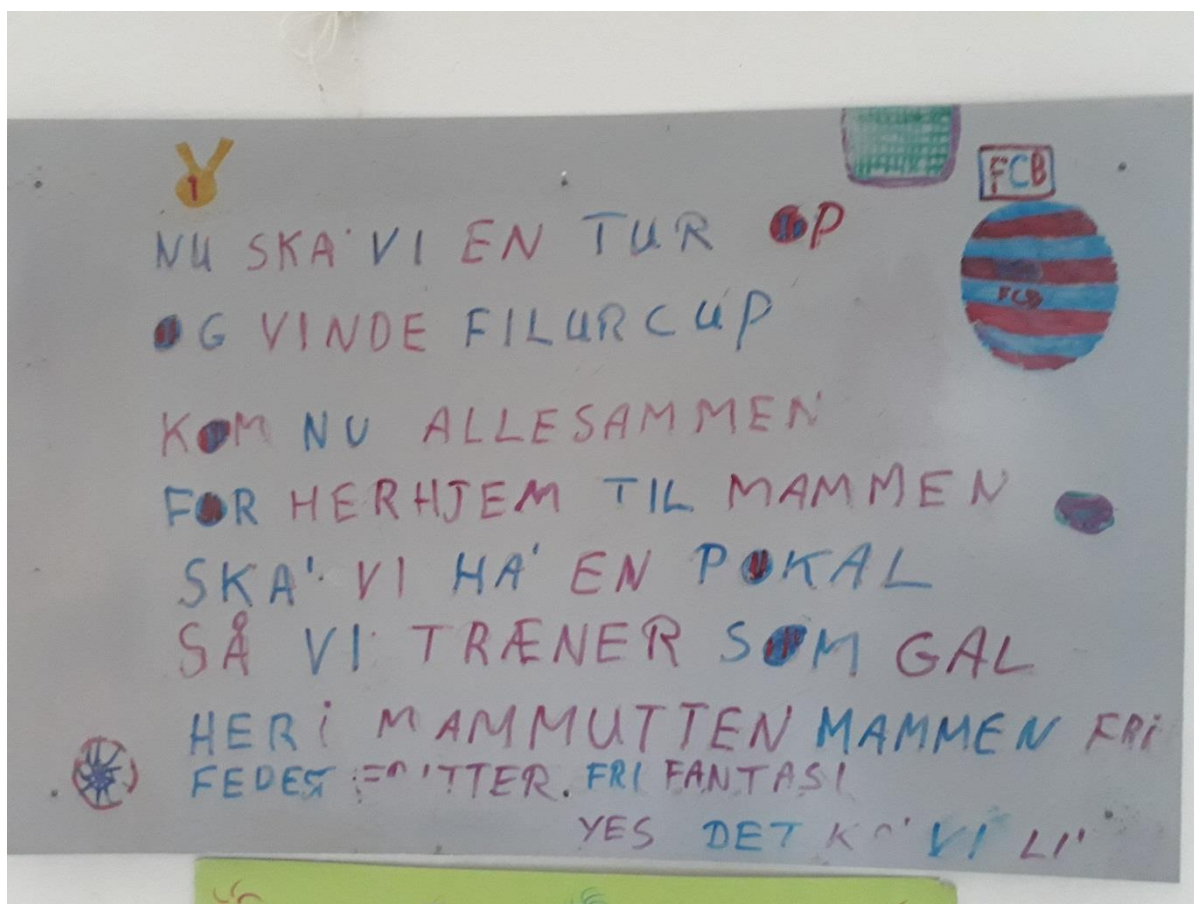 1
FCB
NU SKA' VI EN TUR OP
FCB
OG VINDE FILURCUP
KOM NU ALLESAMMEN
FOR HERHJEM TIL MAMMEN
SKA' VI HA' EN POKAL
SÅ VI TRÆNER SOM GAL
HER i MAMMUTTEN MAMMEN FRi
FEDEST FRI FANTASI
YES DET KA' VI LI'